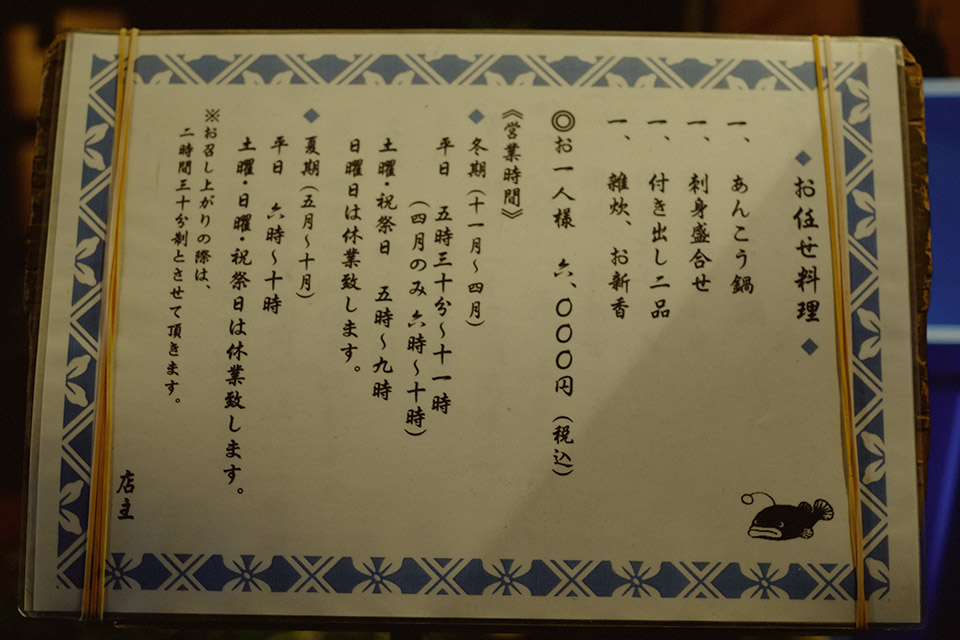 ◆お任せ料理◆
一、あんこう鍋
一、刺身盛合せ
一、付き出し二品
一、雑炊、お新香
◎お一人様 六、〇〇〇円(税込)
《営業時間》
◆冬期(十一月～四月)
平日 五時三十分～十一時
(四月のみ 六時～十時)
土曜・祝祭日 五時～九時
日曜日は休業致します。
◆夏期(五月～十月)
平日 六時～十時
土曜・日曜・祝祭日は休業致します。
※お召し上がりの際は、
二時間三十分制とさせて頂きます。
店主